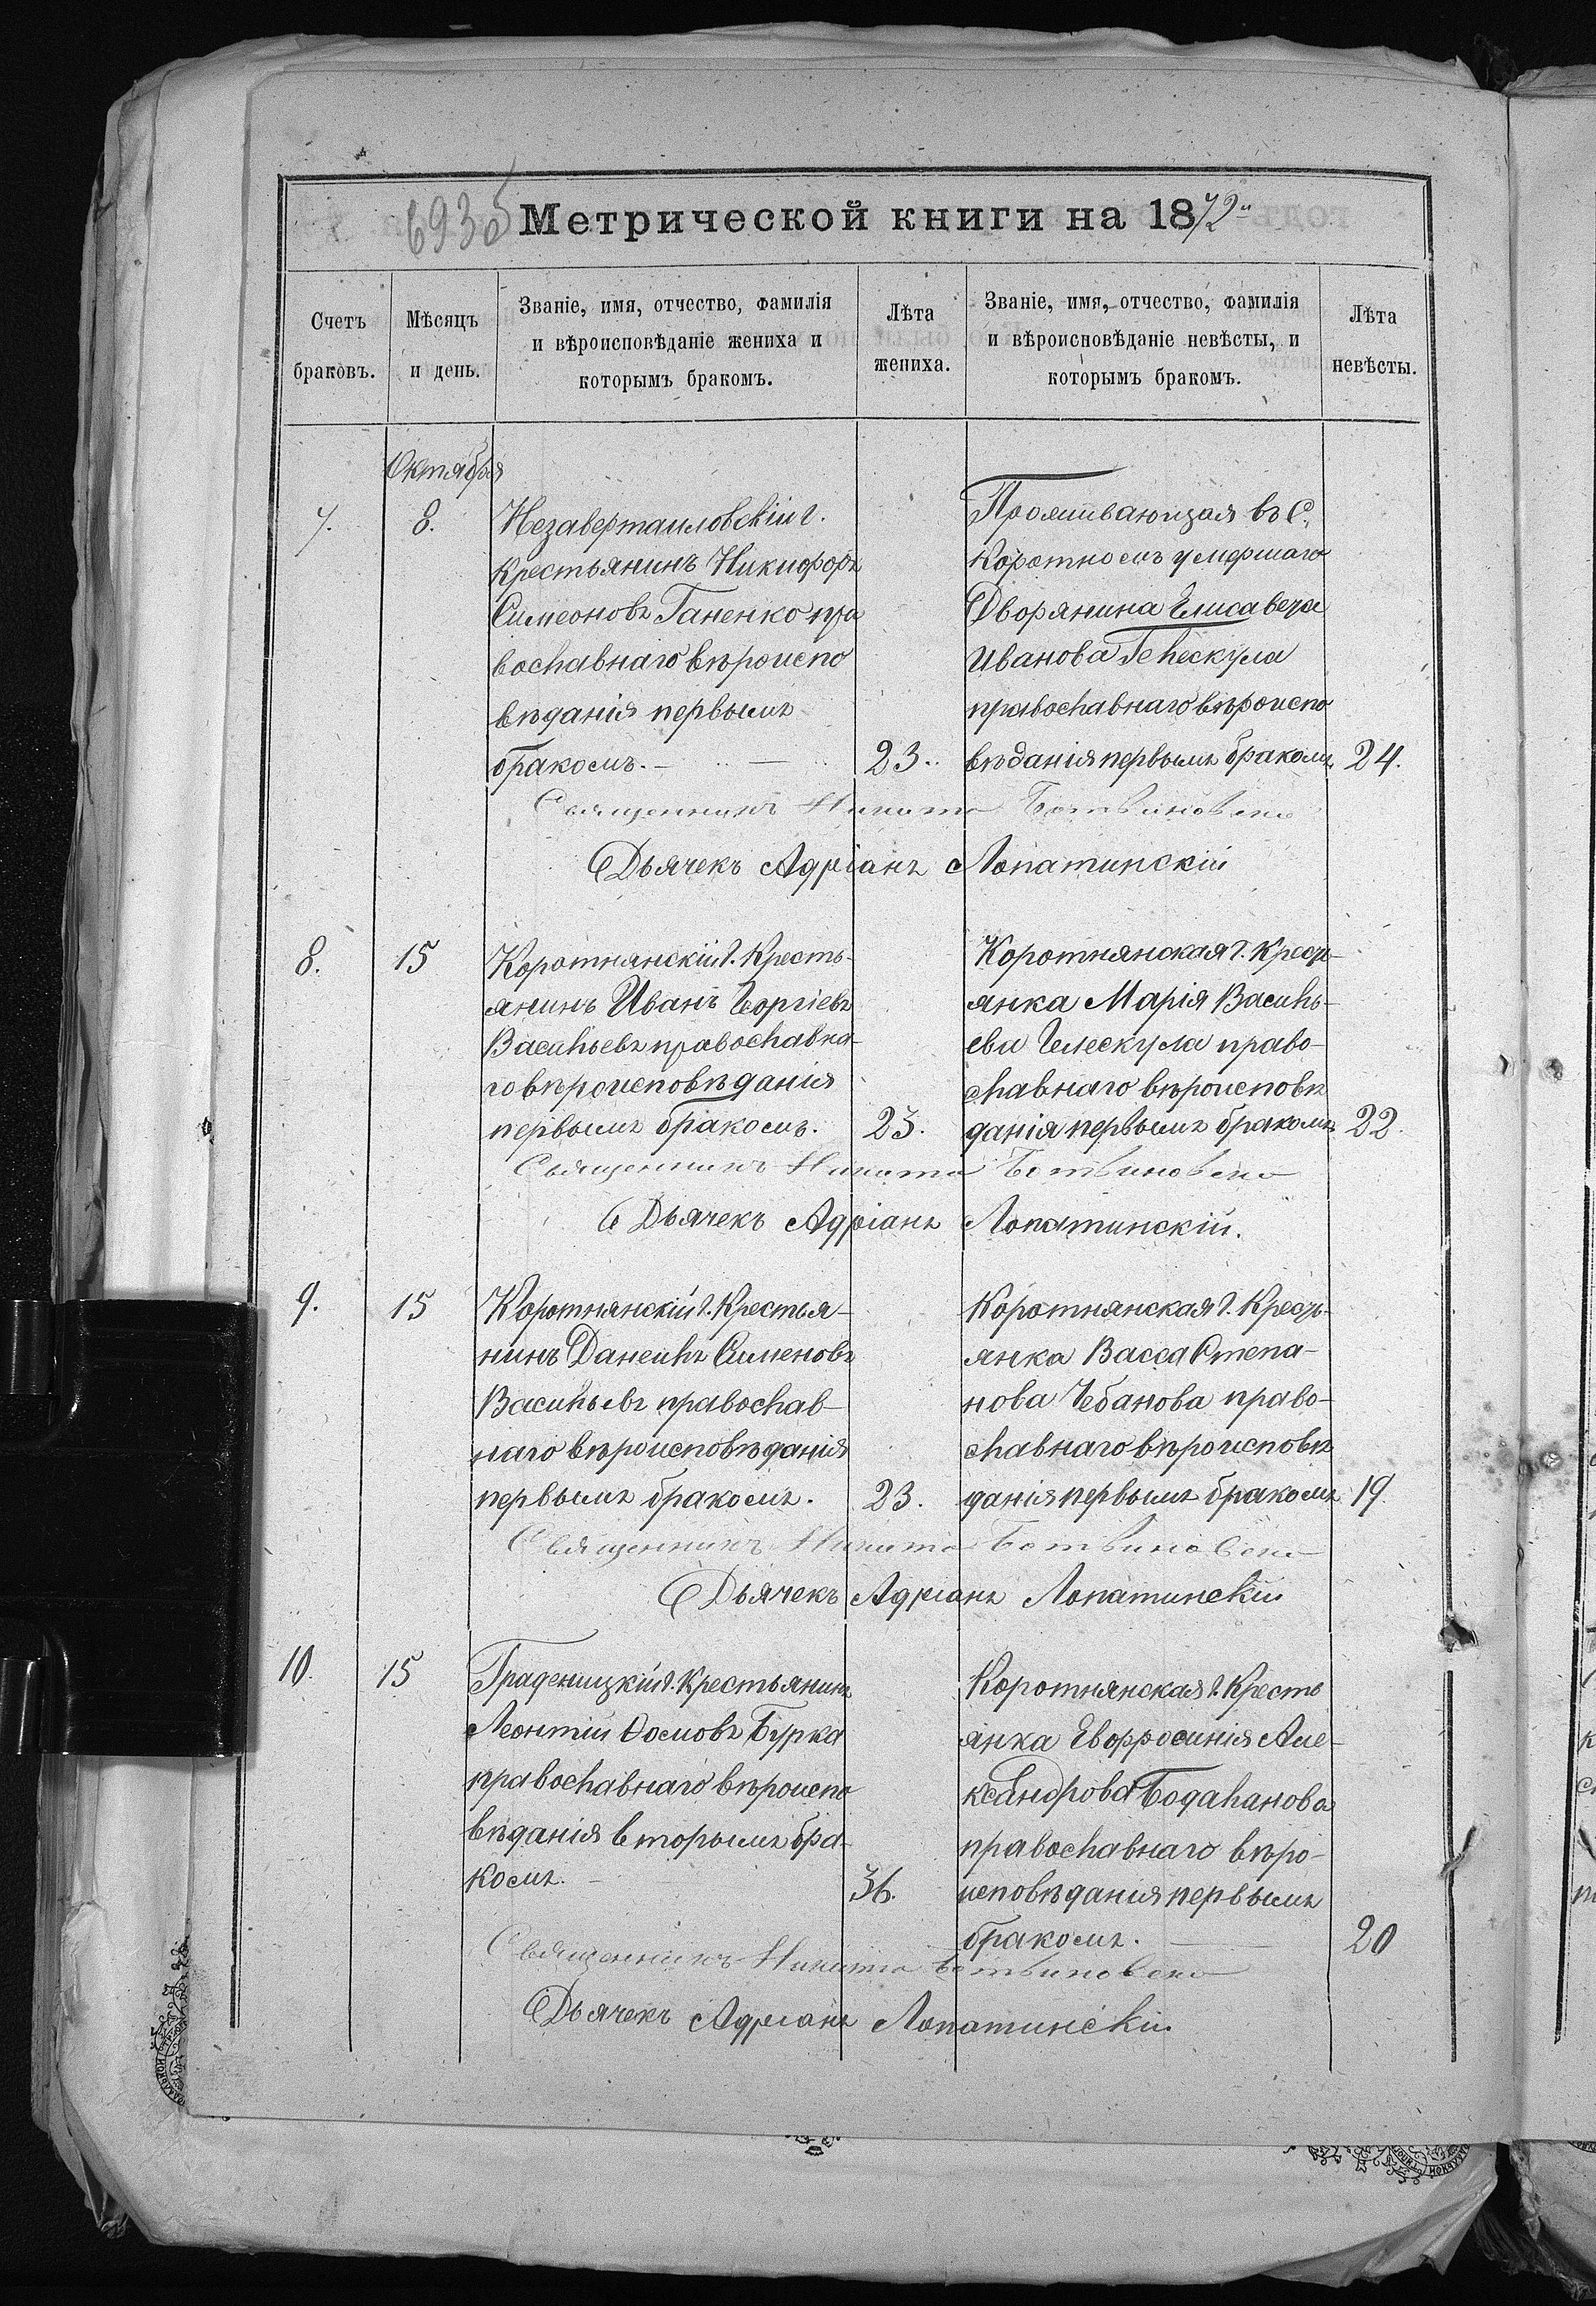 6930
Метрической книги на 1872
Счетъ браковъ.
Мѣсяцъ и день.
Званіе, имя, отчество, фамилія
и вѣроисповѣданіе жениха и
которымъ бракомъ.
Лѣта жениха.
Званіе, имя, отчество, фамилія
и вѣроисповѣданіе невѣсты, и
которымъ бракомъ.
Лѣта невѣсты.
Октября
7.
8.
Незавертаиловскій г.
крестьянинъ Никифоръ
Симеоновъ Ганенко пра
вославнаго вѣроиспо
вѣданія первымъ
бракомъ.
23.
Проживающая въ С.
Коротномъ умершаго
Дворянина Елисавета
Иванова
православнаго вѣроиспо
вѣданія первымъ бракомъ
24.
Священникъ Никита Ботвиновско
Дьячекъ Адріанъ Лопатинскій
8.
15
Коротнянскій г. Кресть-
янинъ Иванъ Георгіевъ
Васильевъ православна-
го вѣроисповѣданія
первымъ бракомъ.
23.
Коротнянская г. Кресть-
янка Марія Василь-
ева Челескула право-
славнаго вѣроисповѣ
данія первымъ бракомъ
22.
Священникъ Никита Ботвиновско
Дьячекъ Адріанъ Лопатинскій.
9.
15
Коротнянскій г. Крестья-
нинъ Даніилъ Сименовъ
Васильевъ православ-
наго вѣроисповѣданія
первымъ бракомъ.
23.
Коротнянская г. Кресть-
янка Васса Степа-
нова Чебанова право-
славнаго вѣроисповѣ
данія первымъ бракомъ
19
Священникъ Никита Ботвиновско
Дьячекъ Адріанъ Лопатинскій
10.
15
Граденицкій г. Крестьянинъ
Леонтій Ѳомовъ Бурка
православнаго вѣроиспо
вѣданія вторымъ бра-
комъ.
36.
Коротнянская г. Кресть
янка Евфросинія Але-
ксандрова Бодаланова
православнаго вѣро-
исповѣданія первымъ
бракомъ.
20
Священникъ Никита Ботвиновско
Дьячекъ Адріанъ Лопатинскій